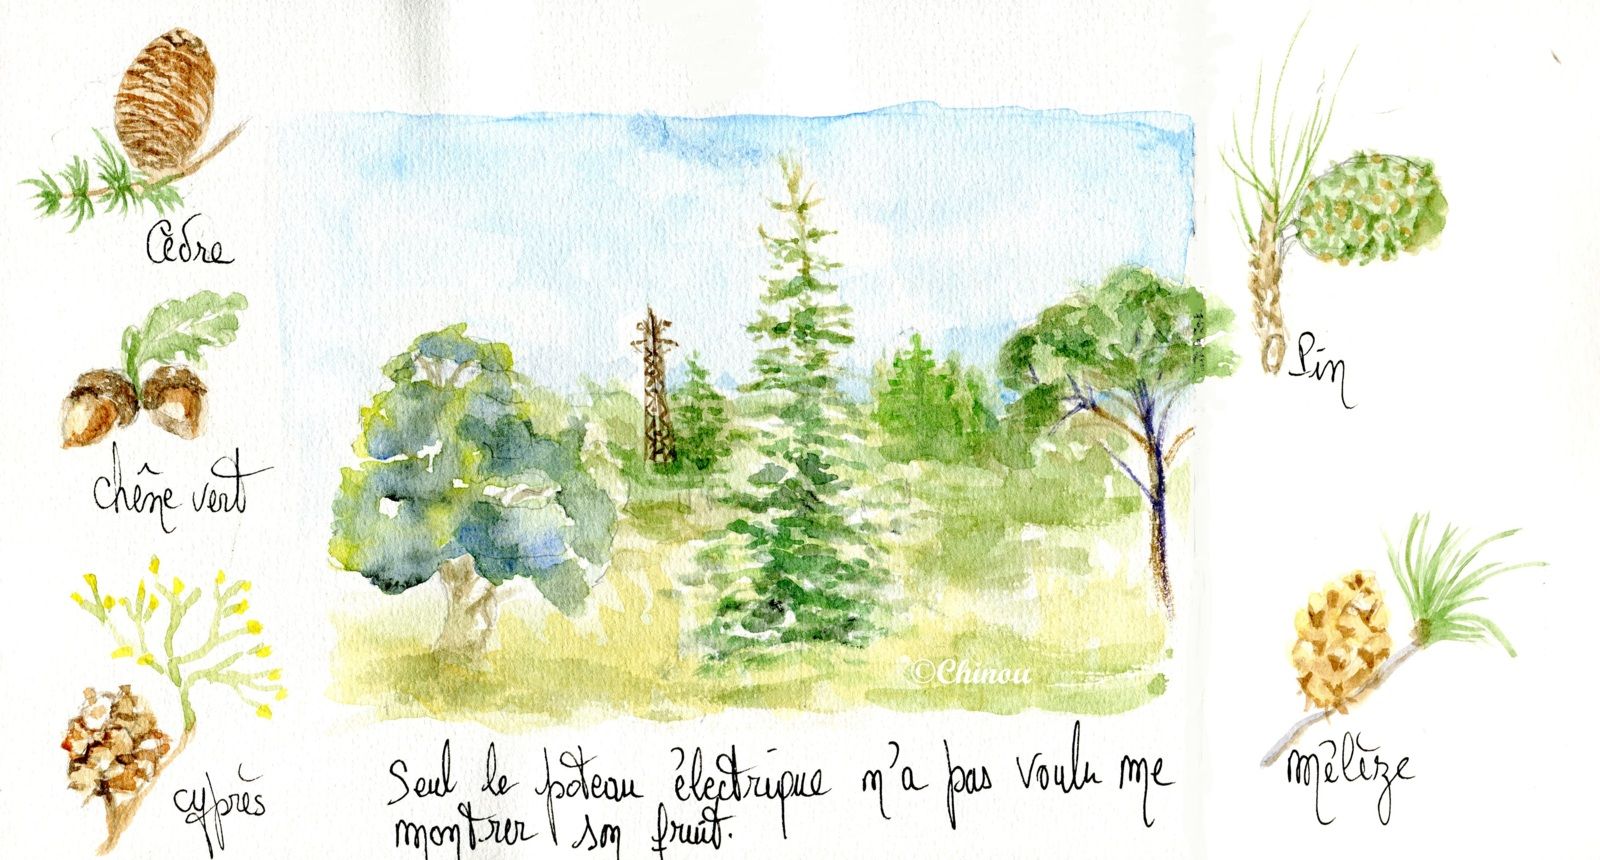 Cèdre
chêne vert
cyprès
Pin
mélèze
©Chinou
Seul le poteau électrique n'a pas voulu me
montrer son fruit.